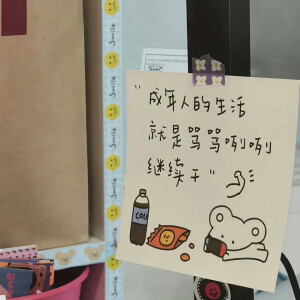 "成年人的生活
就是骂骂咧咧
继续干"
COLA